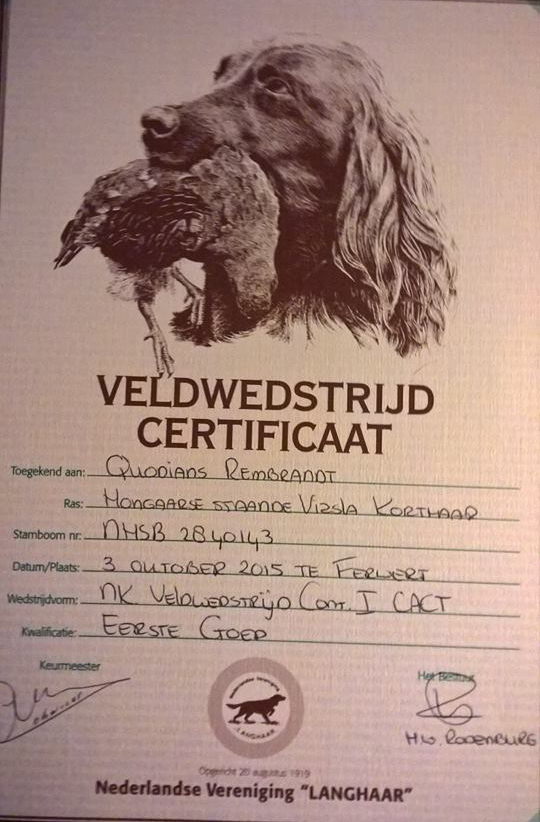 VELDWEDSTRIJD
CERTIFICAAT
Toegekend aan: Quodians Rembrandt
Ras: Hongaarse staande Vizsla Korthaar
Stamboom nr: NHSB 2840143
Datum/Plaats: 3 oktober 2015 te Ferwert
Wedstrijdvorm: NK Veldwedstrijd Cont. I CACT
Kwalificatie: Eerste Goed
Keurmeester
Het Bestuur
H.W. Rodenburg
Nederlandse Vereniging
LANGHAAR
Opgericht 20 augustus 1919
Nederlandse Vereniging "LANGHAAR"